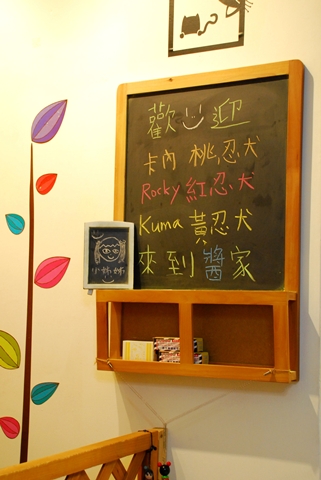 歡迎
卡內 桃忍犬
Rocky 紅忍犬
Kuma 黃忍犬
來到醬家
小姊姊